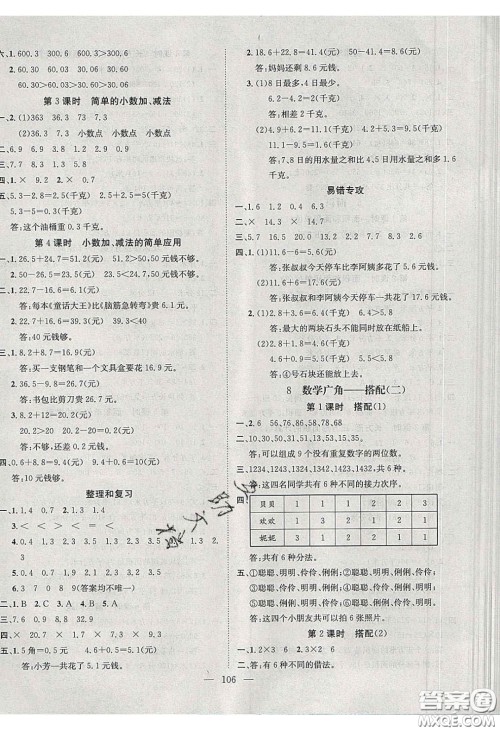 六、1. 600.3 300.6 600.3>300.6
2. 60.30 30.60 30.06 60.03
60.30>60.03>30.60>30.06
第3课时 简单的小数加、减法
一、2. (1)363 36.3 73 7.3
(2)36.3 7.3 小数点 小数点 小数点
二、9.6 3.6 5.3 0.9
四、1. × 9.2 2. × 0.7
五、5.3-2.8=2.5(千克) 2.5+2.8=5.3(千克)
5.6-5.3=0.3(千克)
答:这个油桶重 0.3 千克。
第4课时 小数加、减法的简单应用
一、1. 26.5+24.7=51.2(元) 51.2>50 元钱不够。
2. 50-26.5=23.5(元) 23.5<24.7 元钱不够。
二、1. 22.7-16.6=6.1(元)
答:每本《童话大王》比《脑筋急转弯》贵 6.1 元。
2. 22.7+16.6=39.3(元) 39.3<40
答:40 元够。
三、1. 8.2+8.7=16.9(元)
答:买一支钢笔和一个文具盒要花 16.9 元。
2. 36.5-29.8=6.7(元)
答:书包比剪刀贵 6.7 元。
3. 20.2+8.2=28.4(元) 28.4-20=8.4(元)
答:不够,还差 8.4 元。
四、0.6+8.8=9.4(元) 9.4+0.9=10.3(元)
10.3>10
答:10 元钱不够。
整理和复习
一、< < < < > < > =
三、1. 6.5 4.7 4.7 6.5 2. 1.6 1.3 1.3 1.6
3. 6 3 7 0 8 9(答案均不唯一)
四、1. B 2. C 3. A 4. B 5. A
四、20.7 × 2.7 × 7.3 × 9.3
五、1. 5 角=0.5 元 5.6-0.5=5.1(元)
答:小芳一共花了 5.1 元钱。
2. 18.6+22.8=41.4(元) 50-41.4=8.6(元)
答:妈妈还剩 8.6 元钱。
3. (1)8 日最多,4 日最少。
6.2-4=2.2(千克)
答:相差 2.2 千克。
(2)4.9+6.2=11.1(千克) 4+5.1=9.1(千克)
11.1-9.1=2(千克)
答:7、8 日的用水量之和比 4、5 日用水量之和多 2 千克。
易错专攻
一、1. 6
二、× × ×
三、5.7 16.9 20.8 15.6
四、1. (1)10-2.4=7.6(元) 7.6-5=2.6(元)
答:张叔叔今天停车比李阿姨多花了 2.6 元钱。
(2)10+7.6=17.6(元)
答:张叔叔和李阿姨今天停车一共花了 17.6 元钱。
2. (1)4.8+3.6=8.4(千克) 8.4>8
答:最大的两块石头不能同时放在纸船上。
(2)3.6+2.8=6.4(千克) 8-6.4=1.6(千克)
1.6>1.2
答:④号石块还能放上去。
8 数学广角——搭配(二)
第1课时 搭配(1)
一、2. 6 56,76,86,58,78,68
二、10,30,50,31,51,13,53,15,35
答:可以组成 9 个没有重复数字的两位数。
三、1234,1243,1324,1342,1423,1432
答:这四名同学共有 6 种不同的接力次序。
四、
贝贝 1 1 1 2 2 3
欢欢 1 2 3 1 2 1
妮妮 3 2 1 2 1 1
答:共有 6 种分法。
答:这四个小朋友可以拍 6 张照片。
第2课时 搭配(2)
一、1. 2×3 6 2. 3×2 6
二、答:有 6 种不同的借法。
106